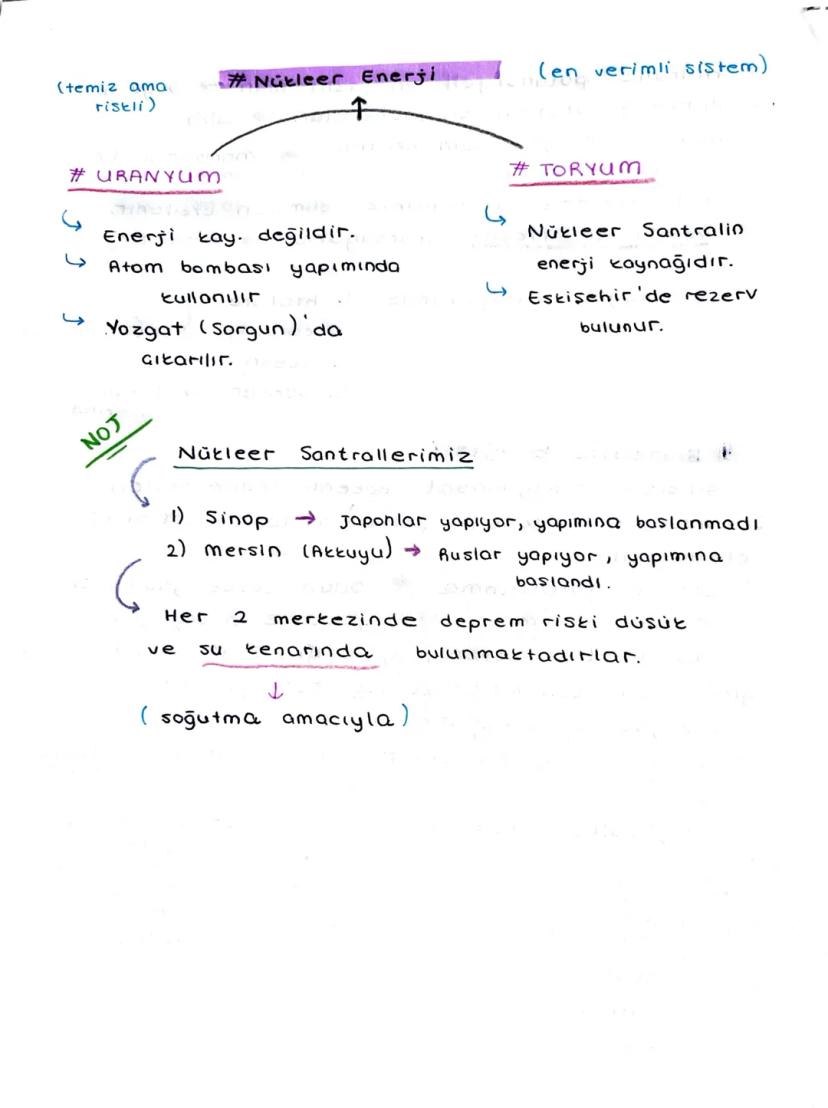 # Nükleer Enerji
(en verimli sistem)
(temiz ama
riskli)
# URANYUM
↳ Enerji kay. değildir.
↳ Atom bombası yapımında
kullanılır
↳ Yozgat (Sorgun)'da
çıkarılır.
# TORYUM
↳ Nükleer Santralin
enerji kaynağıdır.
↳ Eskişehir'de rezerv
bulunur.
NOT
Nükleer Santrallerimiz
1) Sinop → Japonlar yapıyor, yapımına baslanmadı
2) Mersin (Akkuyu) → Ruslar yapıyor, yapımına
baslandı.
Her 2 merkezinde deprem riski düsük
ve su kenarında bulunmaktadırlar.
↓
(soğutma amacıyla)